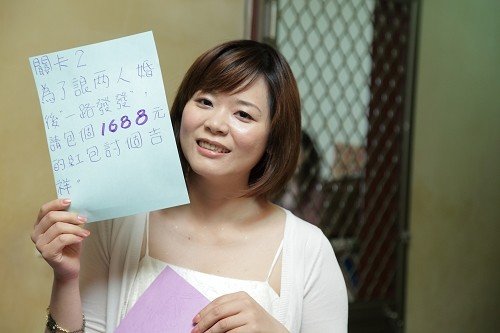 關卡-2
為了讓兩人婚
後"一路發發",
請包個1688元
的紅包討個吉
祥。